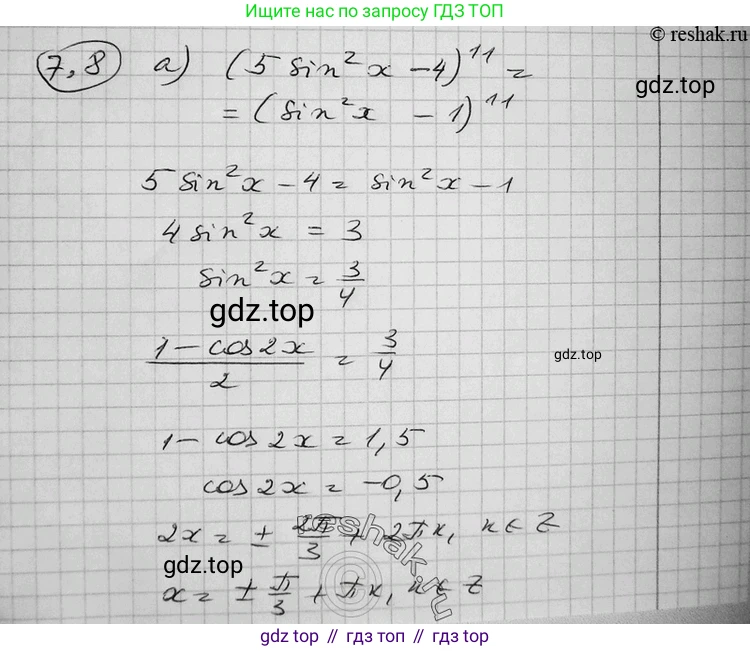 Ищите нас по запросу ГДЗ ТОП
© reshak.ru
7,8 а) (5 sin²x - 4)¹¹ =
gdz.top
= (sin²x - 1)¹¹
5 sin²x - 4 = sin²x - 1
4 sin²x = 3
sin²x = 3/4
gdz.top
(1 - cos2x)/2 = 3/4
gdz.top
1 - cos 2x = 1,5
cos 2x = -0,5
2x = ± 2π/3 + 2πk, k ∈ Z
reshak.ru
gdz.top
x = ± π/3 + πk, k ∈ Z
gdz top // гдз топ // gdz top